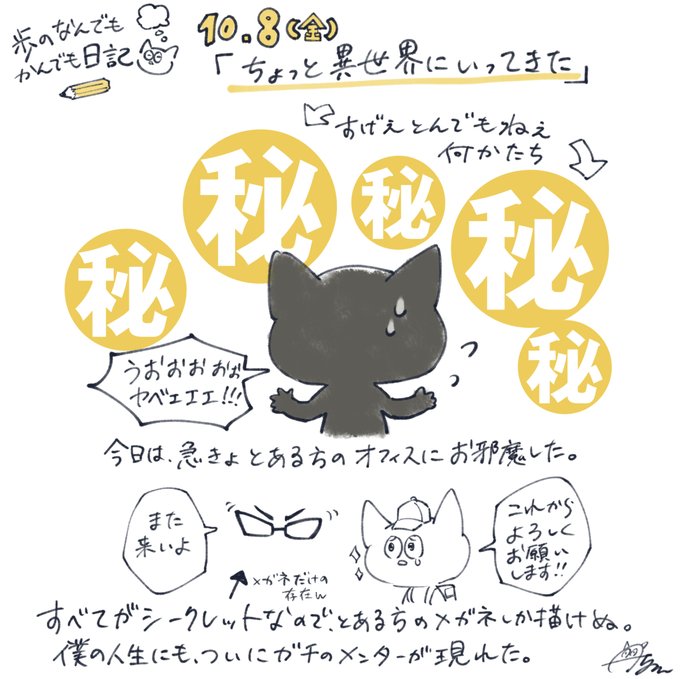 歩のなんでも
かんでも日記
10.8(金)
「ちょっと異世界にいってきた」
すげえとんでもねぇ
何かたち
秘
秘
秘
秘
秘
うおおおぉぉ
ヤベェエエ!!!
今日は、急きょとある方のオフィスにお邪魔した。
また
来いよ
メガネだけの
存在w
これから
よろしく
お願い
します!!
すべてがシークレットなので、とある方のメガネしか描けぬ。
僕の人生にも、ついにガチのメンターが現れた。